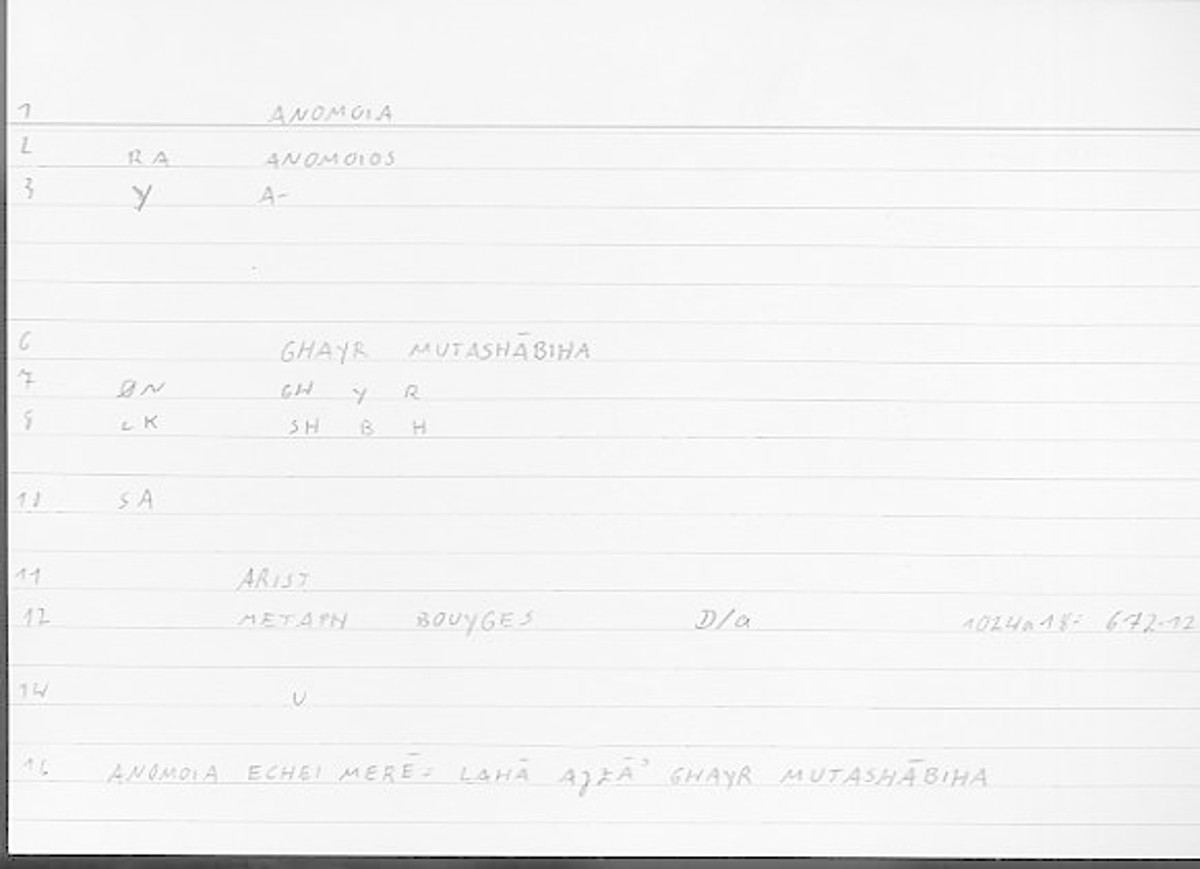 1 ANOMOIA
2 RA ANOMOIOS
3 Y A-
6 GHAYR MUTASHĀBIHA
7 ØN GH Y R
8 LK SH B H
10 SA
11 ARIST
12 METAPH BOUYGES D/a 1024a18= 672.12
14 U
16 ANOMOIA ECHEI MERĒ= LAHĀ AJZĀʾ GHAYR MUTASHĀBIHA